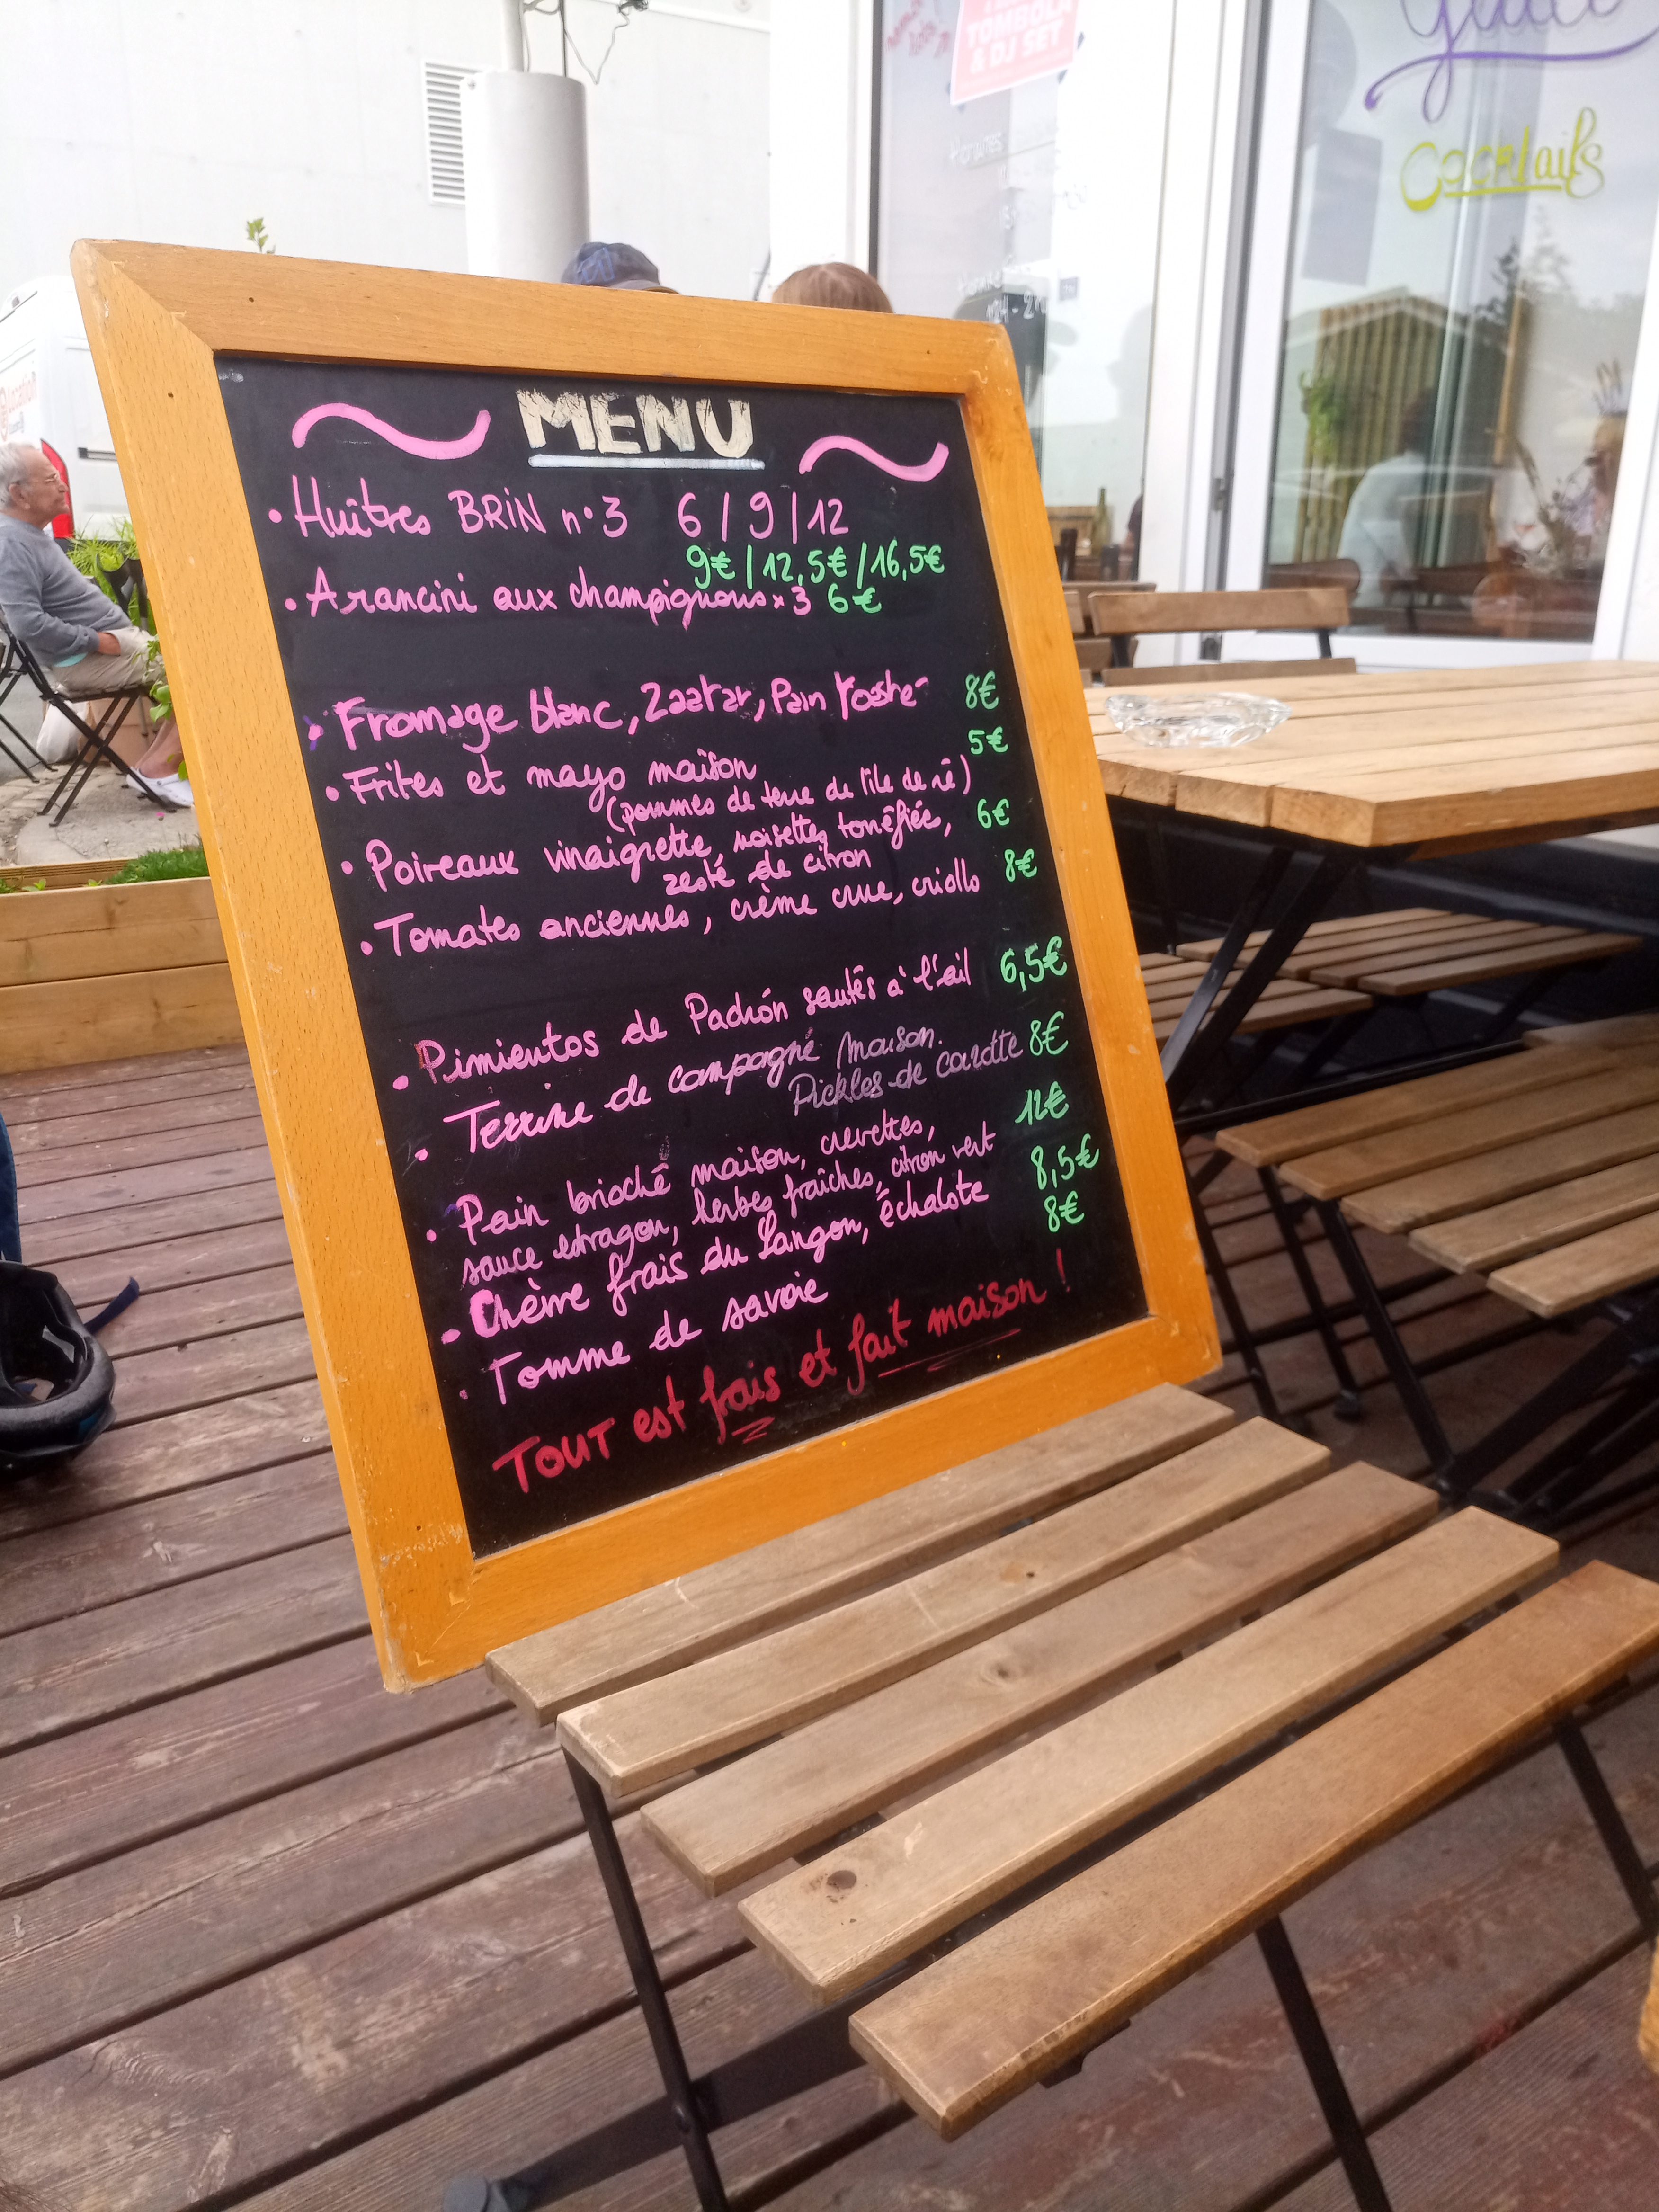 TOMBOLA
& DJ SET
Horaires
Cocktails
MENU
• Huîtres BRiN n°3 6 / 9 / 12
9€ / 12,5€ / 16,5€
• Arancini aux champignons x 3 6€
• Fromage blanc, Zaatar, Pain 8€
• Frites et mayo maison 5€
(pommes de terre de l'île de ré)
• Poireaux vinaigrette, noisettes torréfiée, 6€
zeste de citron
• Tomates anciennes, crème crue, criollo 8€
• Pimientos de Padrón sautés à l'ail 6,5€
• Terrine de campagne maison. 8€
Pickles de carotte
• Pain brioché maison, crevettes, 12€
sauce estragon, herbes fraîches, citron vert
• Chèvre frais du Langon, échalote 8,5€
• Tomme de savoie 8€
TOUT est frais et fait maison !